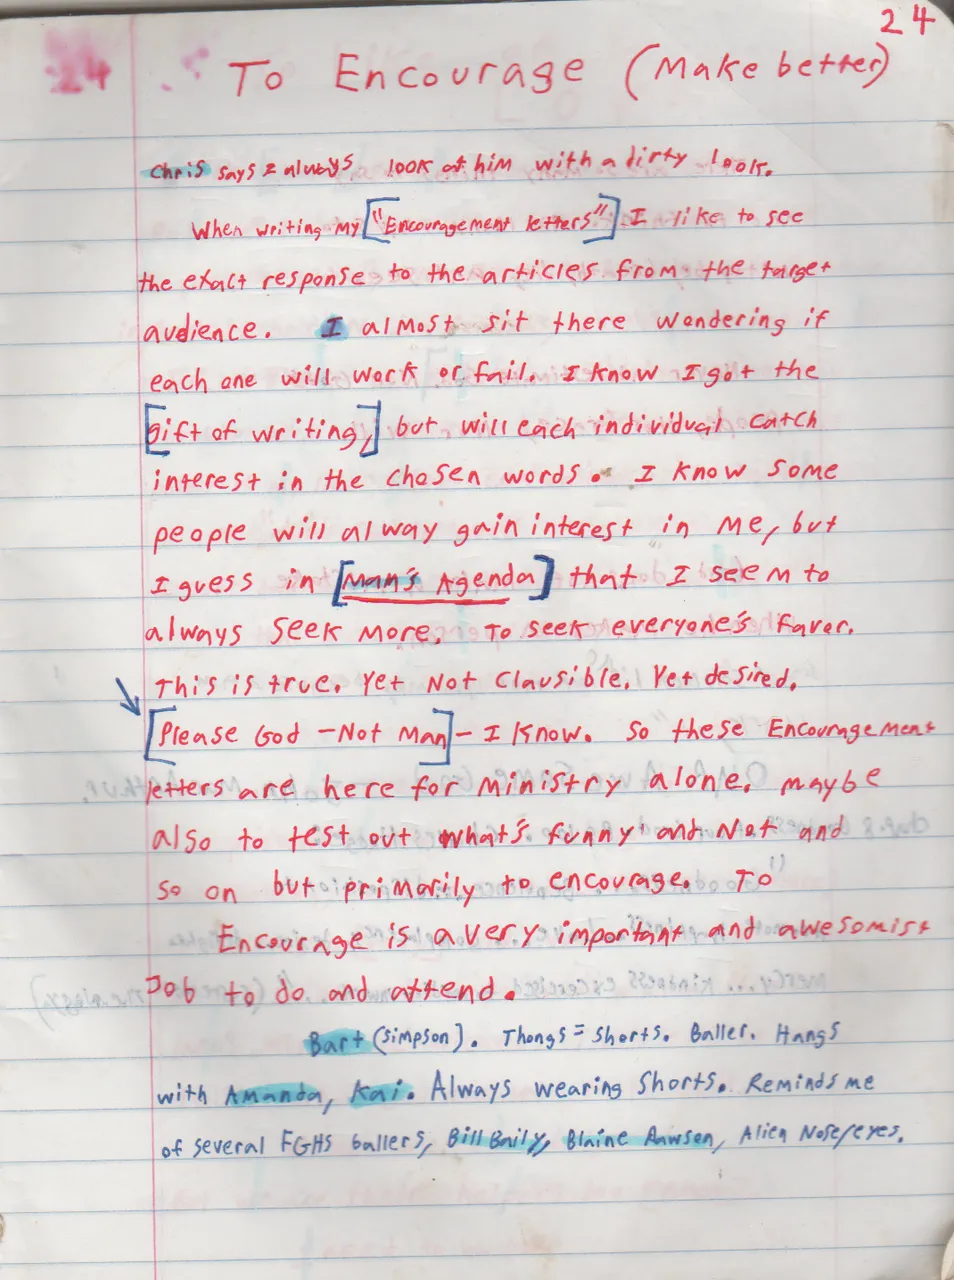 24
24
To Encourage (Make better)
Chris says I always look at him with a dirty look.
When writing my ["Encouragement letters"] I like to see
the exact response to the articles from the target
audience. I almost sit there wondering if
each one will work or fail. I know I got the
[gift of writing,] but will each individual catch
interest in the chosen words. I know some
people will alway gain interest in me, but
I guess in [Man's Agenda] that I seem to
always seek more. To seek everyone's favor.
This is true. Yet Not Clausible. Yet desired.
[Please God - Not Man] - I know. So these Encouragement
letters are here for ministry alone. maybe
also to test out what's funny and Not and
so on but primarily to encourage. To
Encourage is a very important and awesomist
Job to do and attend.
Bart (Simpson). Thongs = Shorts. Baller. Hangs
with Amanda, Kai. Always wearing Shorts. Reminds me
of several FGHS ballers, Bill Baily, Blaine Aawsen, Alien Nose/eyes.